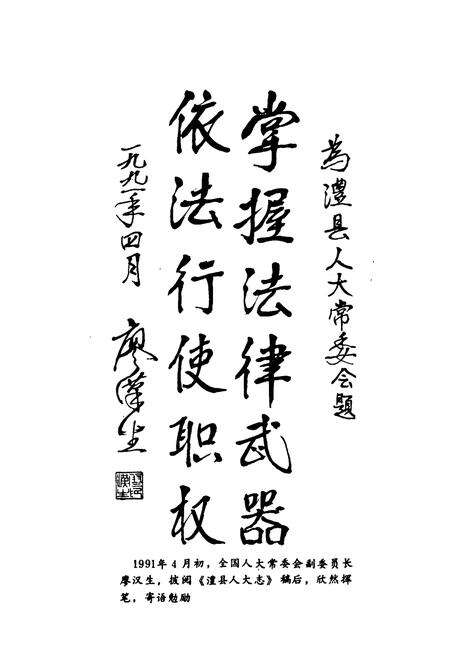 為澧县人大常委会题
掌握法律武器
依法行使职权
一九九一年四月
廖漢生
1991年 4 月初，全国人大常委会副委员长
廖汉生，披阅《澧县人大志》稿后，欣然挥
笔，寄语勉励